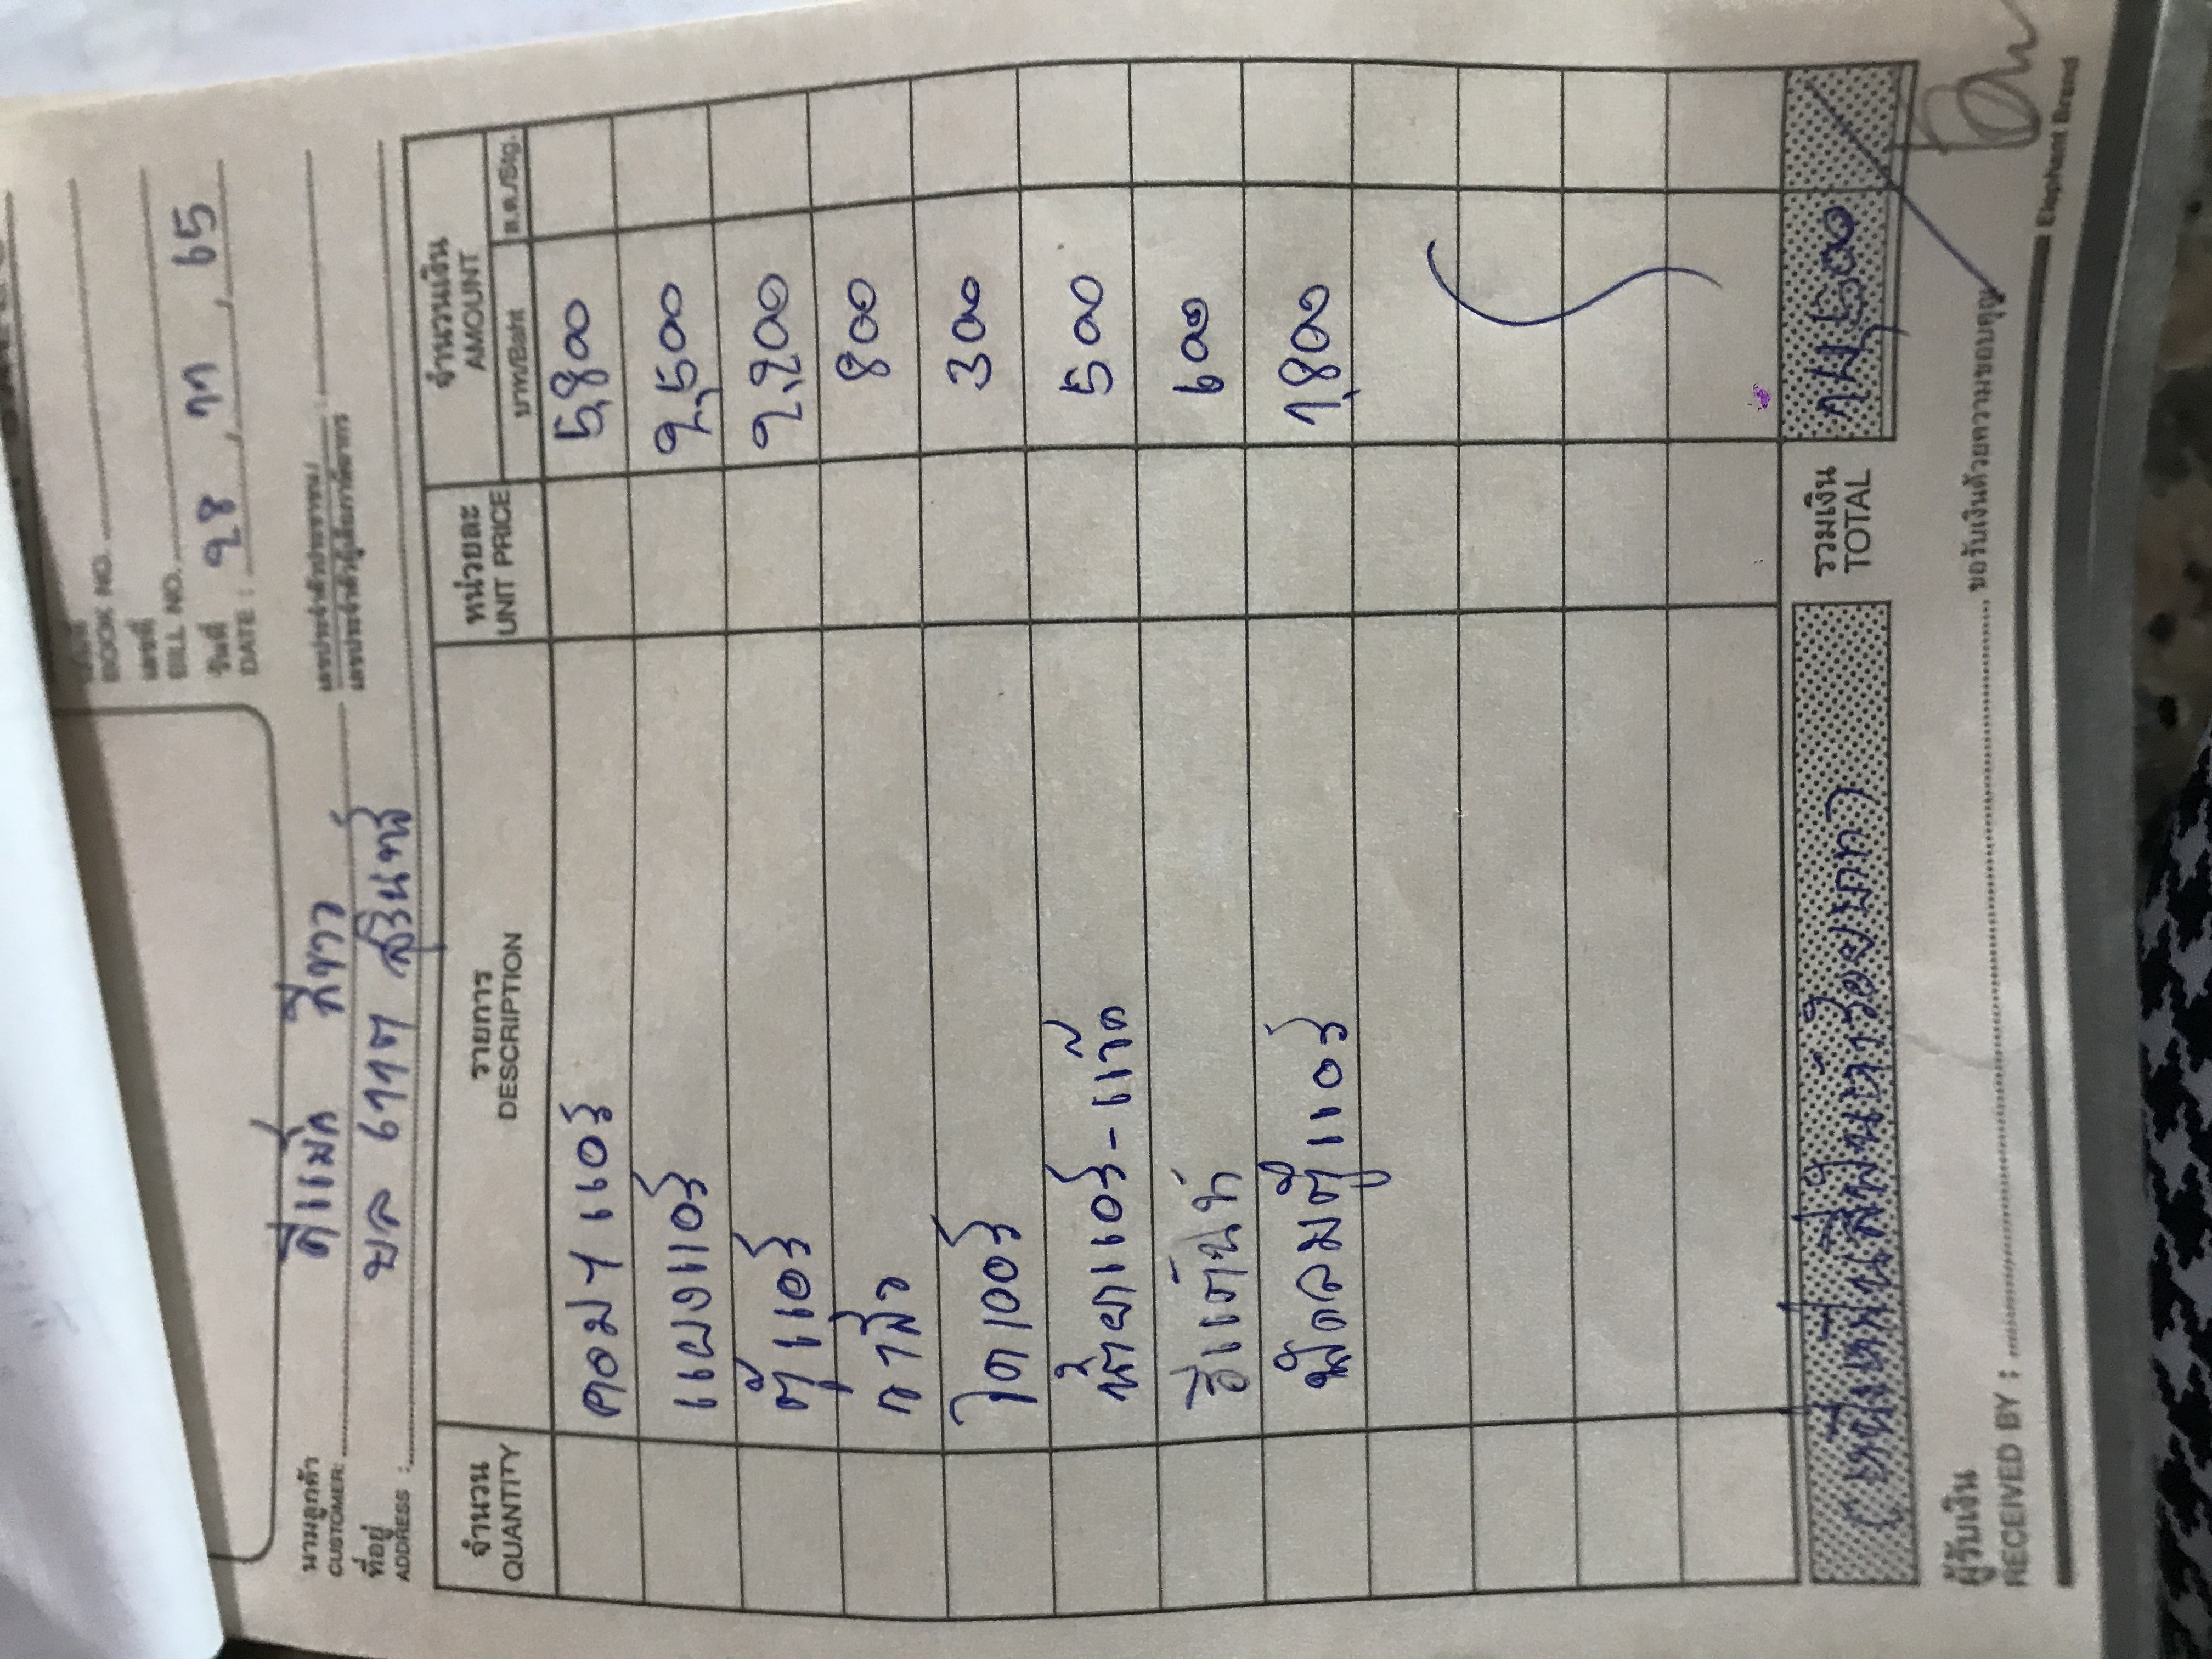 BOOK NO.
เลขที่
BILL NO.
วันที่ 28, 11, 65
DATE :
นามลูกค้า ดีแม็ก สีขาว
CUSTOMER:
เลขประจำตัวประชาชน/
เลขประจำตัวผู้เสียภาษีอากร
ที่อยู่ บล 6117 สุรินทร์
ADDRESS :
จำนวน รายการ หน่วยละ จำนวนเงิน
QUANTITY DESCRIPTION UNIT PRICE AMOUNT
บาท/Baht ส.ต./Stg.
คอมฯ แอร์ 5,800
แผงแอร์ 2,500
ตู้แอร์ 2,200
วาล์ว 800
ไดเออร์ 300
น้ำยาแอร์ - แว๊ค 500
600
พัดลมตู้แอร์ 1,800
รวมเงิน 14,500
TOTAL
ผู้รับเงิน
RECEIVED BY :
ขอรับเงินด้วยความขอบคุณ
Elephant Brand